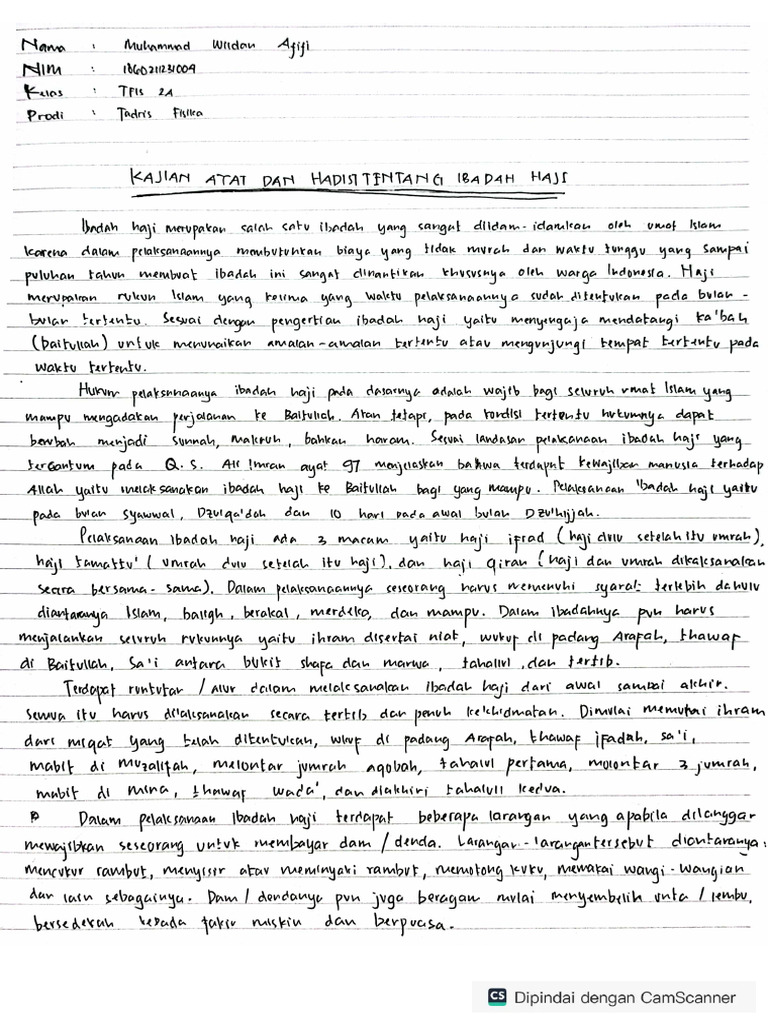 Nama : Muhammad Wildan Afifi
NIM : 1860211231004
Kelas : TFIS 2A
Prodi : Tadris Fisika
KAJIAN AYAT DAN HADIST TENTANG IBADAH HAJI
Ibadah haji merupakan salah satu ibadah yang sangat diidam-idamkan oleh umat Islam
karena dalam pelaksanaannya membutuhkan biaya yang tidak murah dan waktu tunggu yang sampai
puluhan tahun membuat ibadah ini sangat dinantikan khususnya oleh warga Indonesia. Haji
merupakan rukun Islam yang kelima yang waktu pelaksanaannya sudah ditentukan pada bulan-
bulan tertentu. Sesuai dengan pengertian ibadah haji yaitu menyengaja mendatangi ka'bah
(baitullah) untuk menunaikan amalan-amalan tertentu atau mengunjungi tempat tertentu pada
waktu tertentu.
Hukum pelaksanaanya ibadah haji pada dasarnya adalah wajib bagi seluruh umat Islam yang
mampu mengadakan perjalanan ke Baitullah. Akan tetapi, pada kondisi tertentu hukumnya dapat
berubah menjadi sunnah, makruh, bahkan haram. Sesuai landasan pelaksanaan ibadah haji yang
tercantum pada Q.S. Ali Imran ayat 97 menjelaskan bahwa terdapat kewajiban manusia terhadap
Allah yaitu melaksanakan ibadah haji ke Baitullah bagi yang mampu. Pelaksanaan ibadah haji yaitu
pada bulan Syawwal, Dzulqa'dah dan 10 hari pada awal bulan Dzulhijjah.
Pelaksanaan Ibadah haji ada 3 macam yaitu haji ifrad (haji dulu setelah itu umrah),
haji tamattu' (umrah dulu setelah itu haji), dan haji qiran (haji dan umrah dilaksanakan
secara bersama-sama). Dalam pelaksanaannya seseorang harus memenuhi syarat terlebih dahulu
diantaranya Islam, baligh, berakal, merdeka, dan mampu. Dalam ibadahnya pun harus
menjalankan seluruh rukunnya yaitu ihram disertai niat, wukuf di padang Arafah, thawaf
di Baitullah, Sa'i antara bukit shafa dan marwa, tahallul, dan tertib.
Terdapat runtutan / Alur dalam melaksanakan ibadah haji dari awal sampai akhir.
Semua itu harus dilaksanakan secara tertib dan penuh kekhidmatan. Dimulai memulai ihram
dari miqat yang telah ditentukan, wukuf di padang Arafah, thawaf ifadah, sa'i,
mabit di muzalifah, melontar jumrah aqobah, tahalul pertama, molontar 3 jumrah,
mabit di mina, thawaf wada', dan diakhiri tahalull kedua.
Dalam pelaksanaan Ibadah haji terdapat beberapa larangan yang apabila dilanggar
mewajibkan seseorang untuk membayar dam / denda. Larangan-larangan tersebut diantaranya:
mencukur rambut, menyisir atau meminyaki rambut, memotong kuku, memakai wangi-wangian
dan lain sebagainya. Dam / dendanya pun juga beragam mulai menyembelih unta / lembu,
bersedekah kepada fakir miskin dan berpuasa.
CS Dipindai dengan CamScanner